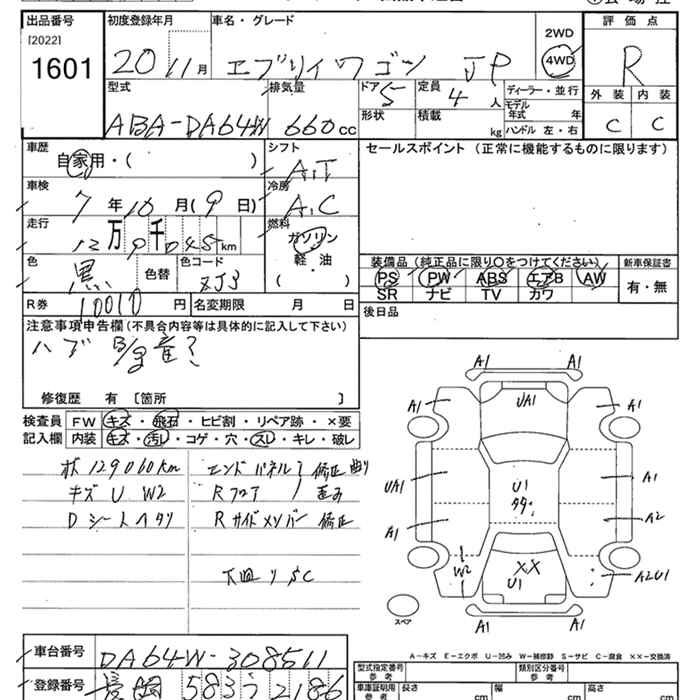 出品番号 初度登録年月 車名・グレード 評価点
[2022]
1601
20 11月 エブリイワゴン JP 2WD 4WD R
型式 排気量 ドア 形状 定員 積載 ディーラー・並行 外装 内装
ABA-DA64W 660cc 5 4人 モデル年式 年
kg ハンドル 左・右 C C
車歴 シフト セールスポイント (正常に機能するものに限ります)
自家用・( ) A.T
車検 冷房
7年10月(9日) A.C
走行 燃料
12万9千045km ガソリン
軽・油
( )
色 黒 色替 色コード ZJ3
装備品(純正品に限り○をつけてください) 新車保証書
PS PW ABS エアB AW 有・無
SR ナビ TV カワ
R券 10010円 名変期限 月 日 後日品
注意事項申告欄(不具合内容等は具体的に記入して下さい)
修復歴 有 〔箇所 〕
検査員 FW キズ・飛石・ヒビ割・リペア跡・×要
記入欄 内装 キズ・汚レ・コゲ・穴・スレ・キレ・破レ
129060km エンドパネル 修正
キズ U W2 Rフロア 歪み
Dシートヘタリ Rサイドメンバー 修正
下廻りSC
A1 A1
A1 UA1 A1
UA1 U1 A1
A1 A2
W2 U1 XX A2U1
A1 A1
スペア
A-キズ E-エクボ U-凹み W-補修跡 S-サビ C-腐食 ××-交換済
車台番号 DA64W-308511
登録番号 長岡 583 2186
型式指定番号 参考 類別区分番号 参考
車庫証明用 参考 長さ cm 幅 cm 高さ cm